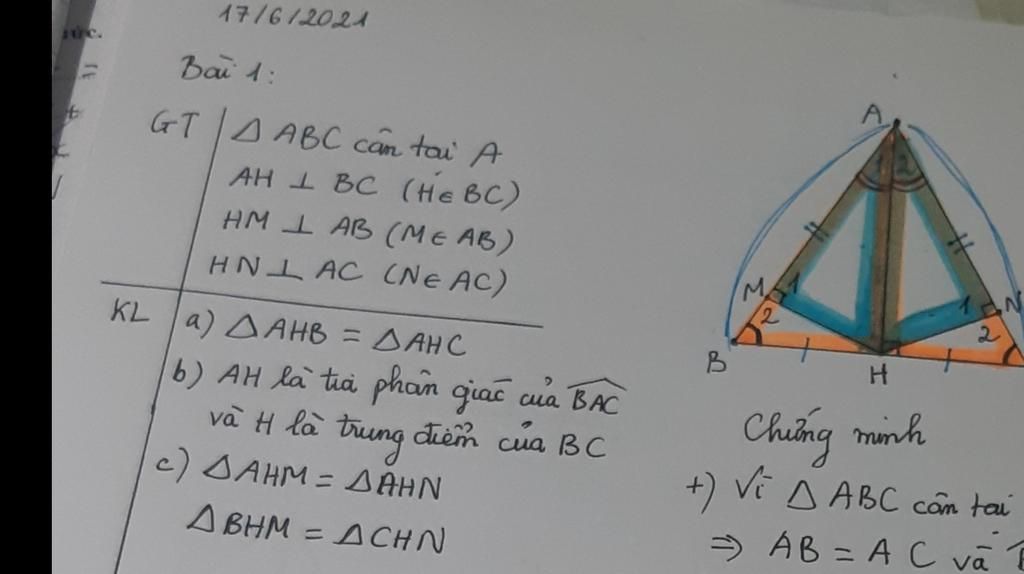 17/6/2021
Bài 1:
GT
Δ ABC cân tại A
AH ⊥ BC (H∈BC)
HM ⊥ AB (M∈AB)
HN ⊥ AC (N∈AC)
KL
a) ΔAHB = ΔAHC
b) AH là tia phân giác của \widehat{BAC}
và H là trung điểm của BC
c) ΔAHM = ΔAHN
ΔBHM = ΔCHN
A
1 2
M 1
2
1 N
2
B
H
Chứng minh
+) Vì Δ ABC cân tại
⇒ AB = AC và